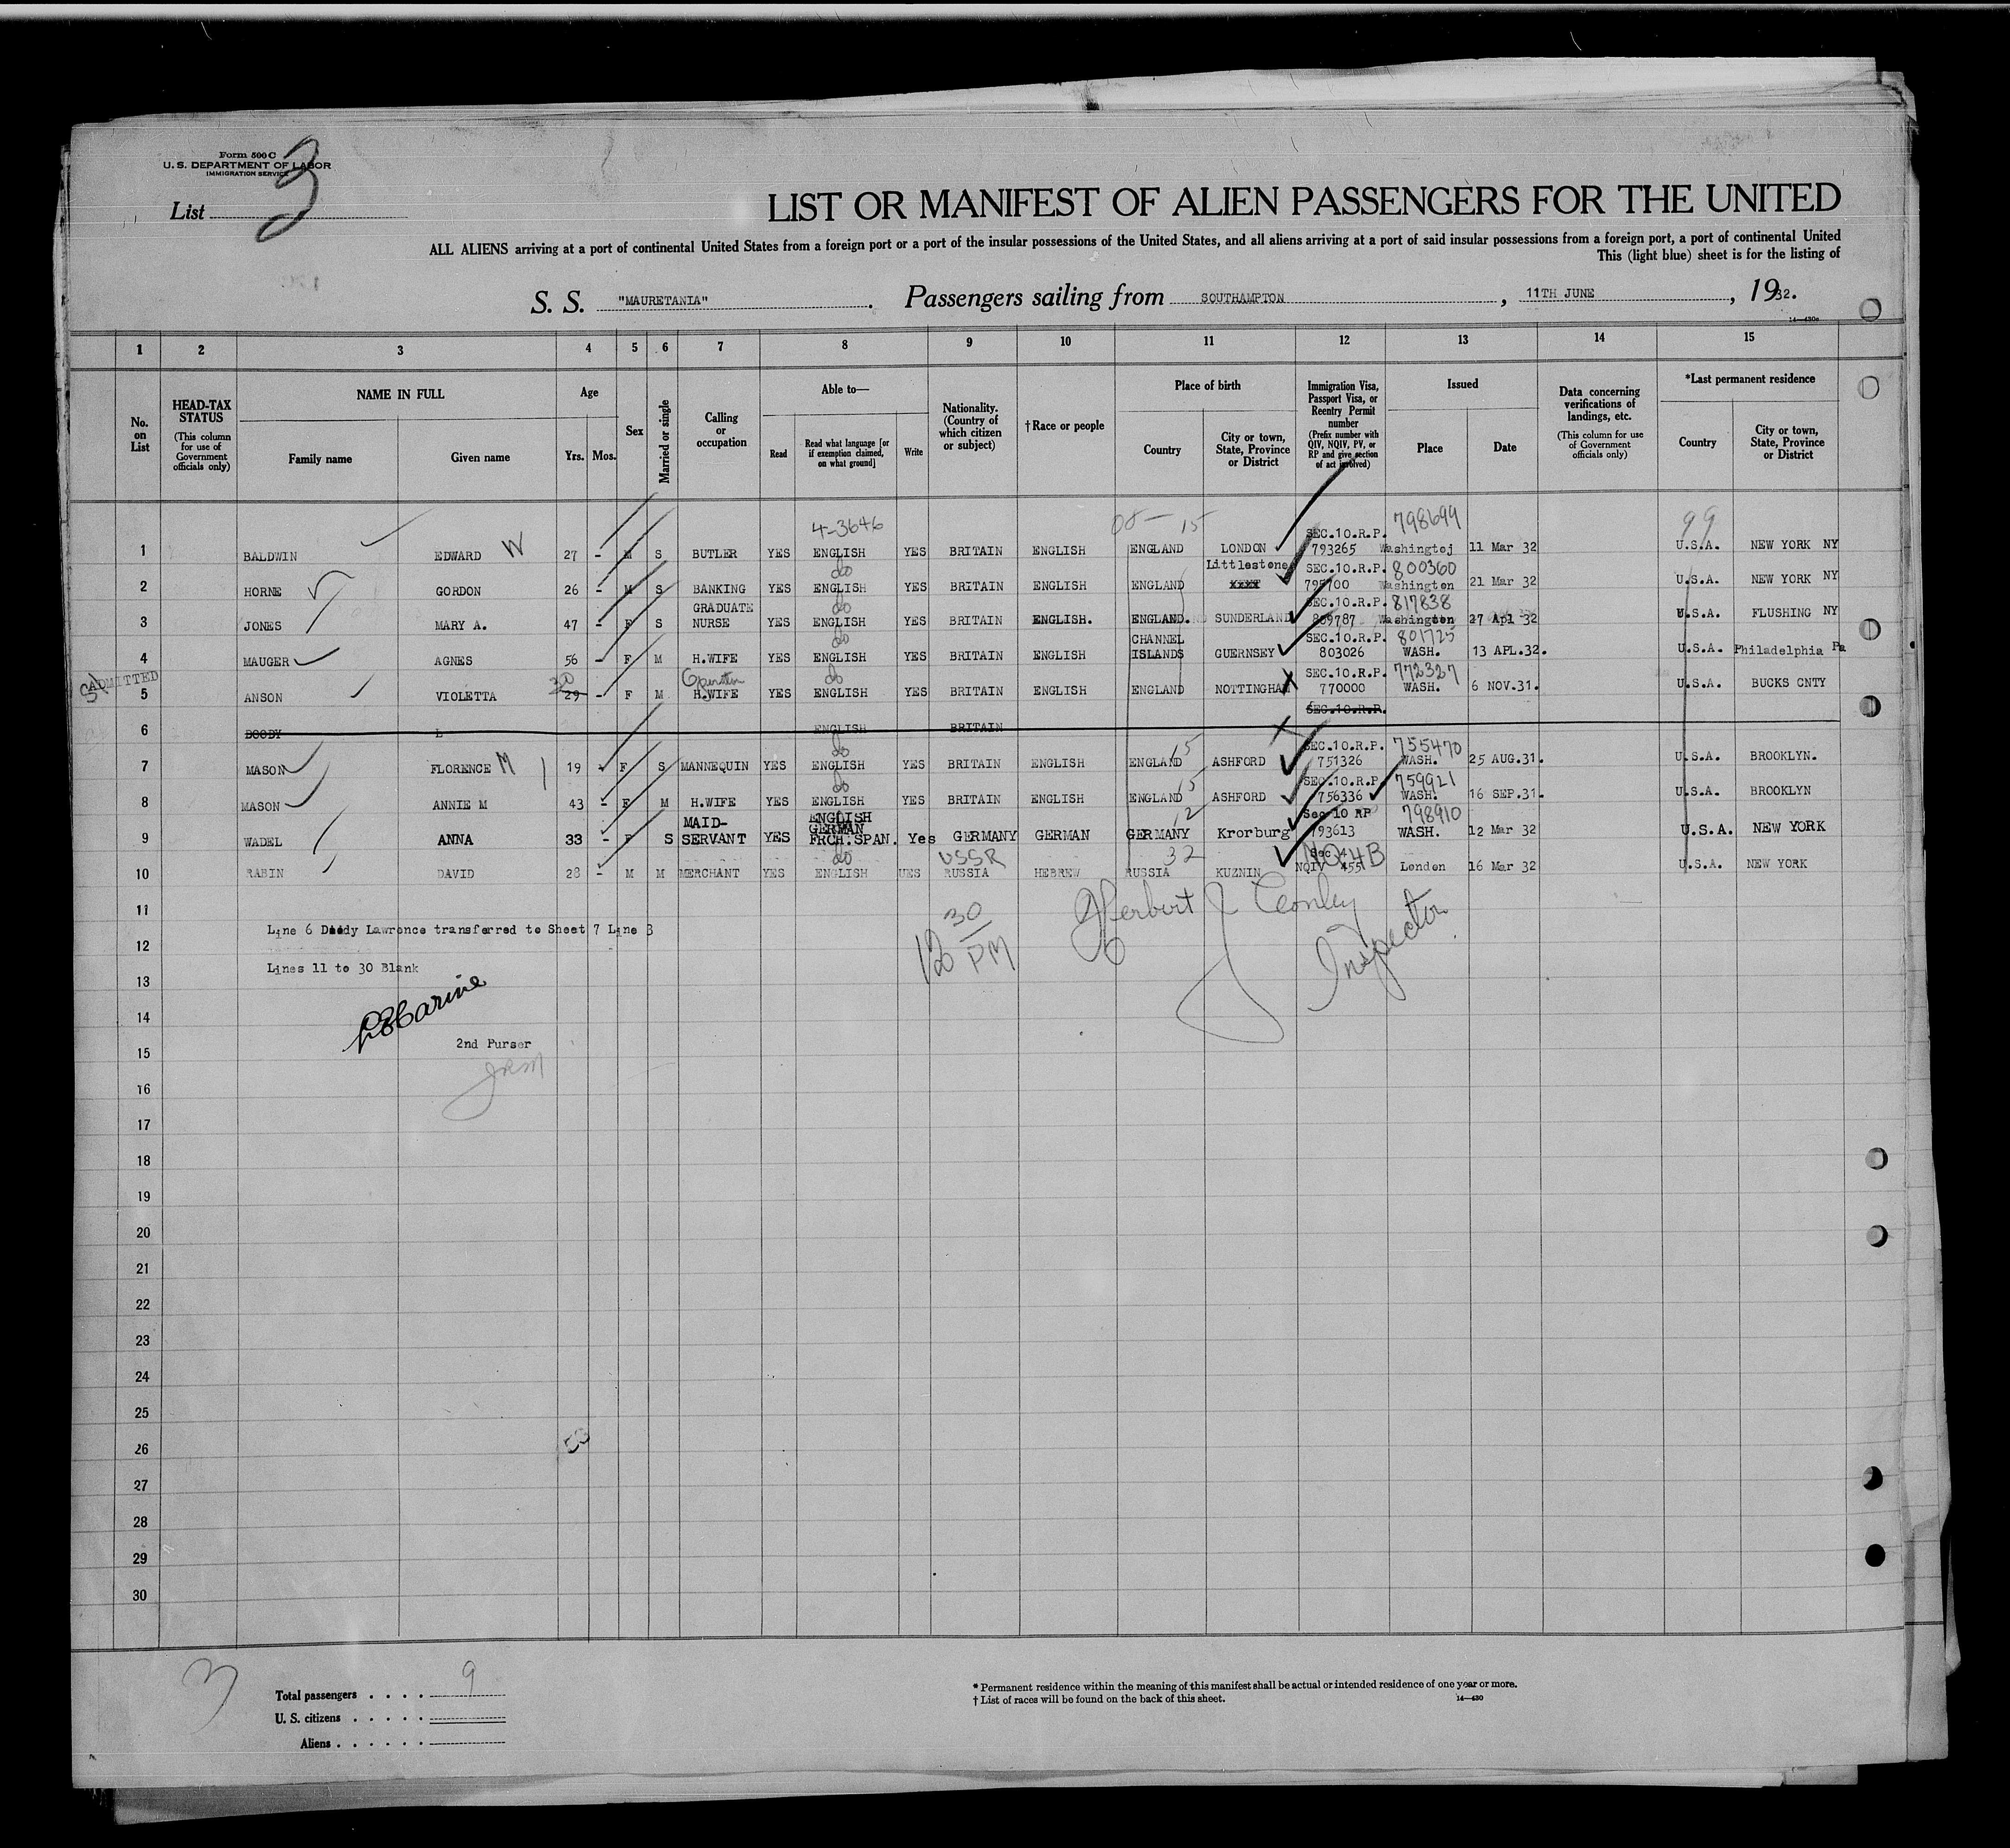 Form 500 C
U. S. DEPARTMENT OF LABOR
IMMIGRATION SERVICE
List 3
LIST OR MANIFEST OF ALIEN PASSENGERS FOR THE UNITED
ALL ALIENS arriving at a port of continental United States from a foreign port or a port of the insular possessions of the United States, and all aliens arriving at a port of said insular possessions from a foreign port, a port of continental United
This (light blue) sheet is for the listing of
S. S. "MAURETANIA". Passengers sailing from SOUTHAMPTON, 11TH JUNE, 1932.
14—430c
1 2 3 4 5 6 7 8 9 10 11 12 13 14 15
No. on List
HEAD-TAX STATUS (This column for use of Government officials only)
NAME IN FULL
Family name Given name
Age
Yrs. Mos.
Sex
Married or single
Calling or occupation
Able to—
Read Read what language [or if exemption claimed, on what ground] Write
Nationality. (Country of which citizen or subject)
† Race or people
Place of birth
Country City or town, State, Province or District
Immigration Visa, Passport Visa, or Reentry Permit number (Prefix number with QIV, NQIV, PV, or RP and give section of act involved)
Issued
Place Date
Data concerning verifications of landings, etc. (This column for use of Government officials only)
*Last permanent residence
Country City or town, State, Province or District
4-3646 08— 15 SEC.10.R.P. 798699 99
1 BALDWIN EDWARD W 27 - M S BUTLER YES ENGLISH YES BRITAIN ENGLISH ENGLAND LONDON 793265 Washingtoj 11 Mar 32 U.S.A. NEW YORK NY
do Littlestone SEC.10.R.P. 800360
2 HORNE GORDON 26 - M S BANKING YES ENGLISH YES BRITAIN ENGLISH ENGLAND XXXX 795700 Washington 21 Mar 32 U.S.A. NEW YORK NY
GRADUATE do SEC.10.R.P. 817838
3 JONES MARY A. 47 - F S NURSE YES ENGLISH YES BRITAIN ENGLISH. ENGLAND. SUNDERLAND 809787 Washington 27 Apl 32 U.S.A. FLUSHING NY
do CHANNEL SEC.10.R.P. 801725
4 MAUGER AGNES 56 - F M H.WIFE YES ENGLISH YES BRITAIN ENGLISH ISLANDS GUERNSEY 803026 WASH. 13 APL.32. U.S.A. Philadelphia Pa
ADMITTED 30 do SEC.10.R.P. 772327
5 ANSON VIOLETTA 29 - F M H.WIFE YES ENGLISH YES BRITAIN ENGLISH ENGLAND NOTTINGHAM 770000 WASH. 6 NOV.31. U.S.A. BUCKS CNTY
SEC.10.R.P.
6 DOODY L ENGLISH BRITAIN
do 15 SEC.10.R.P. 755470
7 MASON FLORENCE M 19 - F S MANNEQUIN YES ENGLISH YES BRITAIN ENGLISH ENGLAND ASHFORD 751326 WASH. 25 AUG.31. U.S.A. BROOKLYN.
do 15 SEC.10.R.P. 759921
8 MASON ANNIE M 43 - F M H.WIFE YES ENGLISH YES BRITAIN ENGLISH ENGLAND ASHFORD 756336 WASH. 16 SEP.31. U.S.A. BROOKLYN
MAID- ENGLISH GERMAN 12 Sec 10 RP 798910
9 WADEL ANNA 33 - F S SERVANT YES FRCH.SPAN. Yes GERMANY GERMAN GERMANY Krorburg 793613 WASH. 12 Mar 32 U.S.A. NEW YORK
do USSR 32 Sec 4
10 RABIN DAVID 28 - M M MERCHANT YES ENGLISH UES RUSSIA HEBREW RUSSIA KUZNIN NQIV 455 London 16 Mar 32 U.S.A. NEW YORK
11
Line 6 Doody Lawrence transferred to Sheet 7 Line 3
12
Lines 11 to 30 Blank
12 30 PM
Herbert J Conley
Inspector
13
14
15
2nd Purser
JRM
16
17
18
19
20
21
22
23
24
25
26
53
27
28
29
30
3
Total passengers . . . . 9
U. S. citizens . . . . .
Aliens . . . . . .
* Permanent residence within the meaning of this manifest shall be actual or intended residence of one year or more.
† List of races will be found on the back of this sheet.
14—430